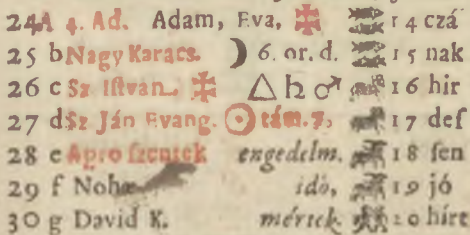 24 A 4. Ad. Adam, Eva, ✠ 14 czá
25 b Nagy Karacs. ☽ 6. or. d. 15 nak
26 c Sz. Iſtvan. ✠ △ ♄ ♂ 16 hir
27 d Sz Ján Evang. ☉ tám. 7, 17 deſ
28 e Apro ſzentek engedelm. 18 ſen
29 f Nohæ idò, 19 jó
30 g David K. mértek 20 hírt